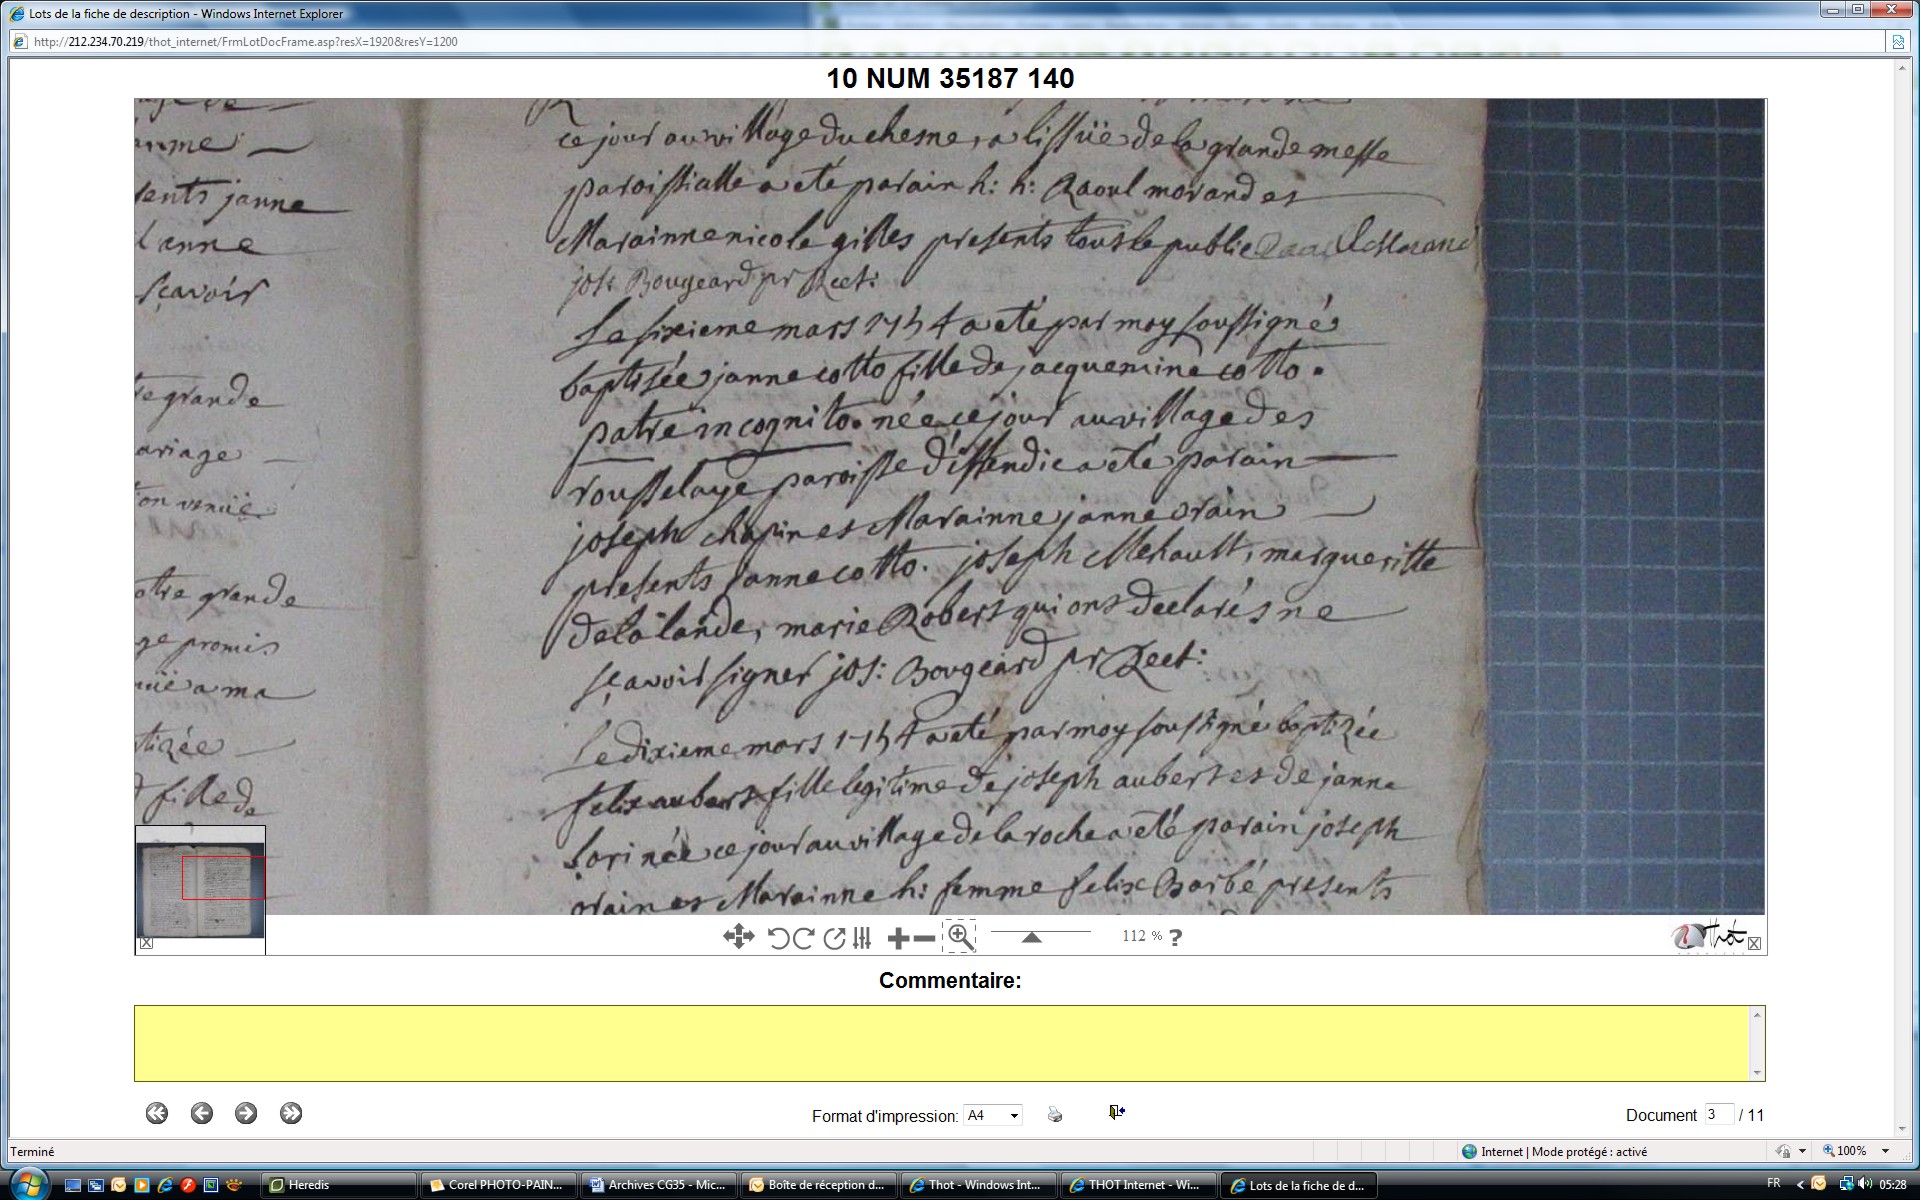 Lots de la fiche de description - Windows Internet Explorer
http://212.234.70.219/thot_internet/FrmLotDocFrame.asp?resX=1920&resY=1200
10 NUM 35187 140
sents janne
l anne
sçavoir
grande
ariage
ion venuë
otre grande
ge promis
nuë a ma
tizée
fille de
ce jour au village du chesne, a lissuë de la grande messe
paroissialle a eté parain h: h: Raoul morand et
Marainne nicole gilles presents tous le public
jos: Bougeard pr Rect:
Le sixieme mars 1754 a eté par moy soussigné
baptisée janne cotto fille de jacquemine cotto.
patre incognito. née ce jour au village des
rousselaye paroisse d'iffendic a eté parain
joseph chapin et Marainne janne orain
presents janne cotto. joseph Mehault, margueritte
de la lande, marie Robert qui ont declarés ne
sçavoir signer jos: Bougeard pr Rect:
Le dixieme mars 1754 a eté par moy soussigné baptizée
felix aubert fille legitime de joseph aubert et de janne
Lori née ce jour au village de la roche a eté parain joseph
orain et Marainne h: femme felix Barbé presents
112 % ?
Thot
Commentaire:
Format d'impression: A4
Document 3 / 11
Terminé
Internet | Mode protégé : activé
100%
Heredis
Corel PHOTO-PAIN...
Archives CG35 - Mic...
Boîte de réception d...
Thot - Windows Int...
THOT Internet - Wi...
Lots de la fiche de d...
FR
05:28